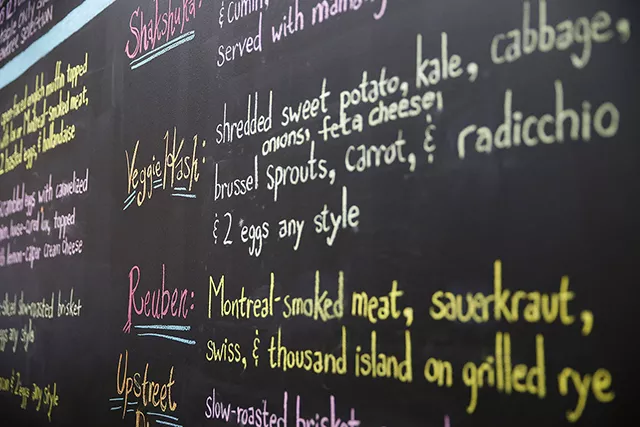 selection
open-faced english muffin topped
Montreal-smoked meat,
2 toasted eggs & hollandaise
scrambled eggs with caramelized
topped
with lemon-caper cream cheese
slow-roasted brisket
eggs any style
& 2 eggs any style
Shakshuka:
& cumin,
served with
Veggie Hash:
shredded sweet potato, kale, cabbage,
onions, feta cheese,
brussel sprouts, carrot, & radicchio
& 2 eggs any style
Reuben:
Montreal-smoked meat, sauerkraut,
swiss, & thousand island on grilled rye
Upstreet
slow-roasted brisket